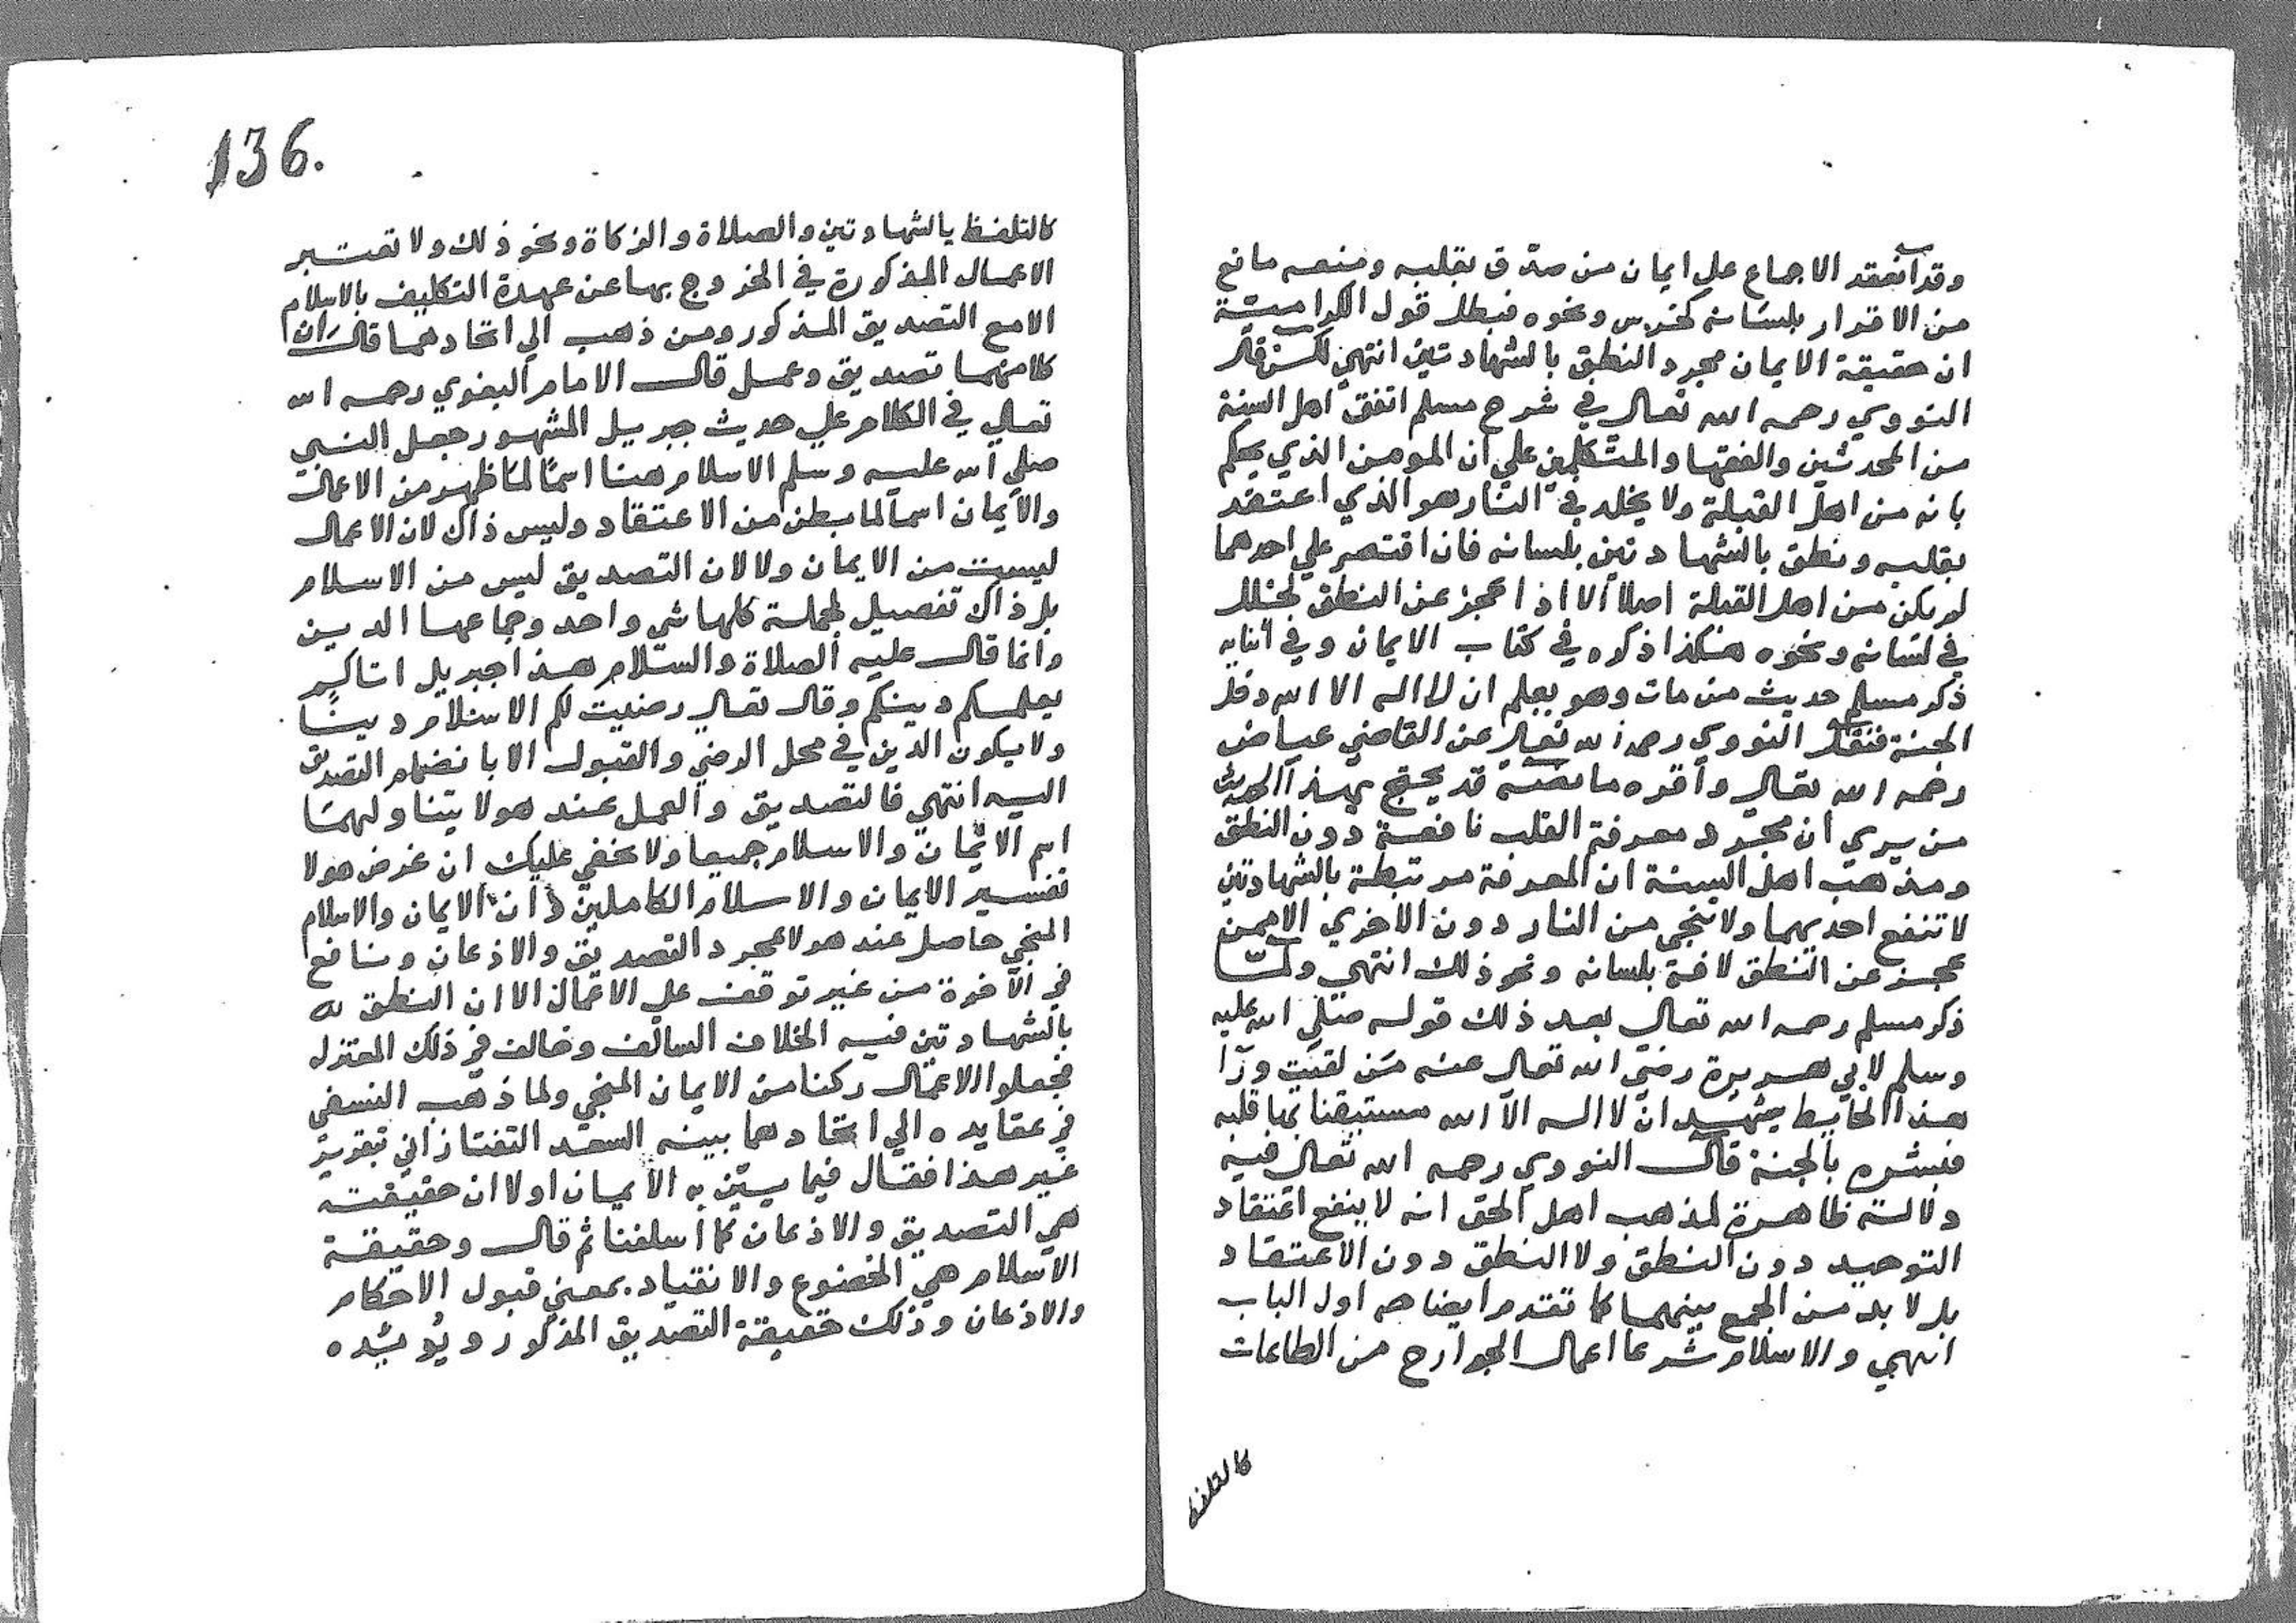 وقد انعقد الاجماع علي ايمان من صدق بقلبه ومنعه مانع
من الاقرار بلسانه كخرس ونحوه فبطل قول الكرامية
ان حقيقة الايمان مجرد النطق بالشهادتين انتهي لكن قال
النووي رحمه الله تعالي في شرح مسلم اتفق اهل السنة
من المحدثين والفقها والمتكلمين علي ان المومن الذي يحكم
بانه من اهل القبلة ولا يخلد في النار هو الذي اعتقد
بقلبه ونطق بالشهادتين بلسانه فان اقتصر علي احدهما
لم يكن من اهل القبلة اصلا الا اذا عجز عن النطق لخلل
في لسانه ونحوه هكذا ذكره في كتاب الايمان وفي اثنايه
ذكر مسلم حديث من مات وهو يعلم ان لا اله الا الله دخل
الجنة فنقل النووي رحمه الله تعالي عن القاضي عياض
رحمه الله تعالي واقره ما نصه قد يحتج بهذا الحديث
من يري ان مجرد معرفة القلب نافعة دون النطق
ومذهب اهل السنة ان المعرفة مرتبطة بالشهادتين
لا تنفع احديهما ولا تنجي من النار دون الاخري الا لمن
عجز عن النطق لافة بلسانه ونحو ذلك انتهي ولمّا
ذكر مسلم رحمه الله تعالي بعد ذلك قوله صلي الله عليه
وسلم لابي هريرة رضي الله تعالي عنه من لقيت ورا
هذا الحايط يشهد ان لا اله الا الله مستيقنا بها قلبه
فبشره بالجنة قال النووي رحمه الله تعالي فيه
دلالة ظاهرة لمذهب اهل الحق انه لا ينفع اعتقاد
التوحيد دون النطق ولا النطق دون الاعتقاد
بل لا بد من الجمع بينهما كما تقدم ايضاحه اول الباب
انتهي والاسلام شرعا اعمال الجوارح من الطاعات
كالتلفظ
136.
كالتلفظ بالشهادتين والصلاة والزكاة ونحو ذلك ولا تعتبر
الاعمال المذكورة في الخروج بها عن عهدة التكليف بالاسلام
الا مع التصديق المذكور ومن ذهب الي اتحادهما قال ان
كلا منهما تصديق وعمل قال الامام البغوي رحمه الله
تعالي في الكلام علي حديث جبريل المشهور جعل النبي
صلي الله عليه وسلم الاسلام هنا اسما لما ظهر من الاعمال
والايمان اسما لما بطن من الاعتقاد وليس ذاك لان الاعمال
ليست من الايمان ولا لان التصديق ليس من الاسلام
بل ذاك تفصيل لجملة كلها شي واحد وجماعها الدين
وانما قال عليه الصلاة والسلام هذا جبريل اتاكم
يعلمكم دينكم وقال تعالي رضيت لكم الاسلام دينًا
ولا يكون الدين في محل الرضي والقبول الا بانضمام التصديق
اليه انتهي فالتصديق والعمل عند هولا يتناولهما
اسم الايمان والاسلام جميعا ولا يخفي عليك ان غرض هولا
تفسير الايمان والاسلام الكاملين لان الايمان والاسلام
المنجي حاصل عند هولا بمجرد التصديق والاذعان ونافع
في الآخرة من غير توقف علي الاعمال الا ان النطق له
بالشهادتين فيه الخلاف السالف وخالف في ذلك المعتزله
فجعلوا الاعمال ركنا من الايمان المنجي ولما ذهب النسفي
في عقايده الي اتحادهما بينه السعد التفتازاني بتقرير
غير هذا فقال فيما يبيّن به الايمان اولا ان حقيقته
هي التصديق والاذعان كما اسلفنا ثم قال وحقيقة
الاسلام هي الخضوع والانقياد بمعني قبول الاحكام
والاذعان وذلك حقيقة التصديق المذكور ويُويّده